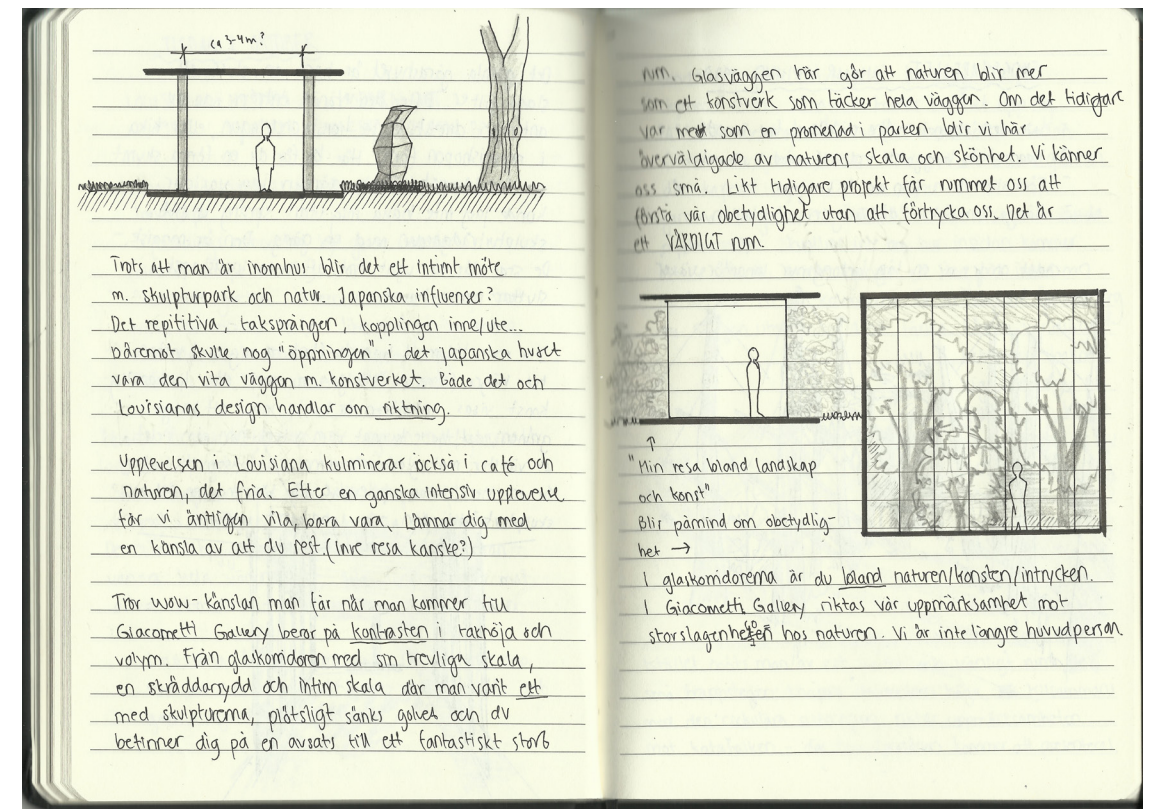 ca 3-4 m?
Trots att man är inomhus blir det ett intimt möte
m. skulpturpark och natur. Japanska influenser?
Det repititiva, taksprången, kopplingen inne/ute...
Däremot skulle nog "öppningen" i det japanska huset
vara den vita väggen m. konstverket. Både det och
Louisianas design handlar om riktning.
Upplevelsen i Louisiana kulminerar också i café och
naturen, det fria. Efter en ganska intensiv upplevelse
får vi äntligen vila, bara vara. Lämnar dig med
en känsla av att du rest. (inre resa kanske?)
Tror wow-känslan man får när man kommer till
Giacometti Gallery beror på kontrasten i takhöjd och
volym. Från glaskorridoren med sin trevliga skala,
en skräddarsydd och intim skala där man varit ett
med skulpturerna, plötsligt sänks golvet och du
befinner dig på en avsats till ett fantastiskt stort
rum. Glasväggen här gör att naturen blir mer
som ett konstverk som täcker hela väggen. Om det tidigare
var mer som en promenad i parken blir vi här
överväldigade av naturens skala och skönhet. Vi känner
oss små. Likt tidigare projekt får rummet oss att
förstå vår obetydlighet utan att förtrycka oss. Det är
ett VÄRDIGT rum.
↑
"Min resa bland landskap
och konst"
Blir påmind om obetydlig-
het →
I glaskorridorerna är du bland naturen/konsten/intrycken.
I Giacometti Gallery riktas vår uppmärksamhet mot
storslagenheten hos naturen. Vi är inte längre huvudperson.